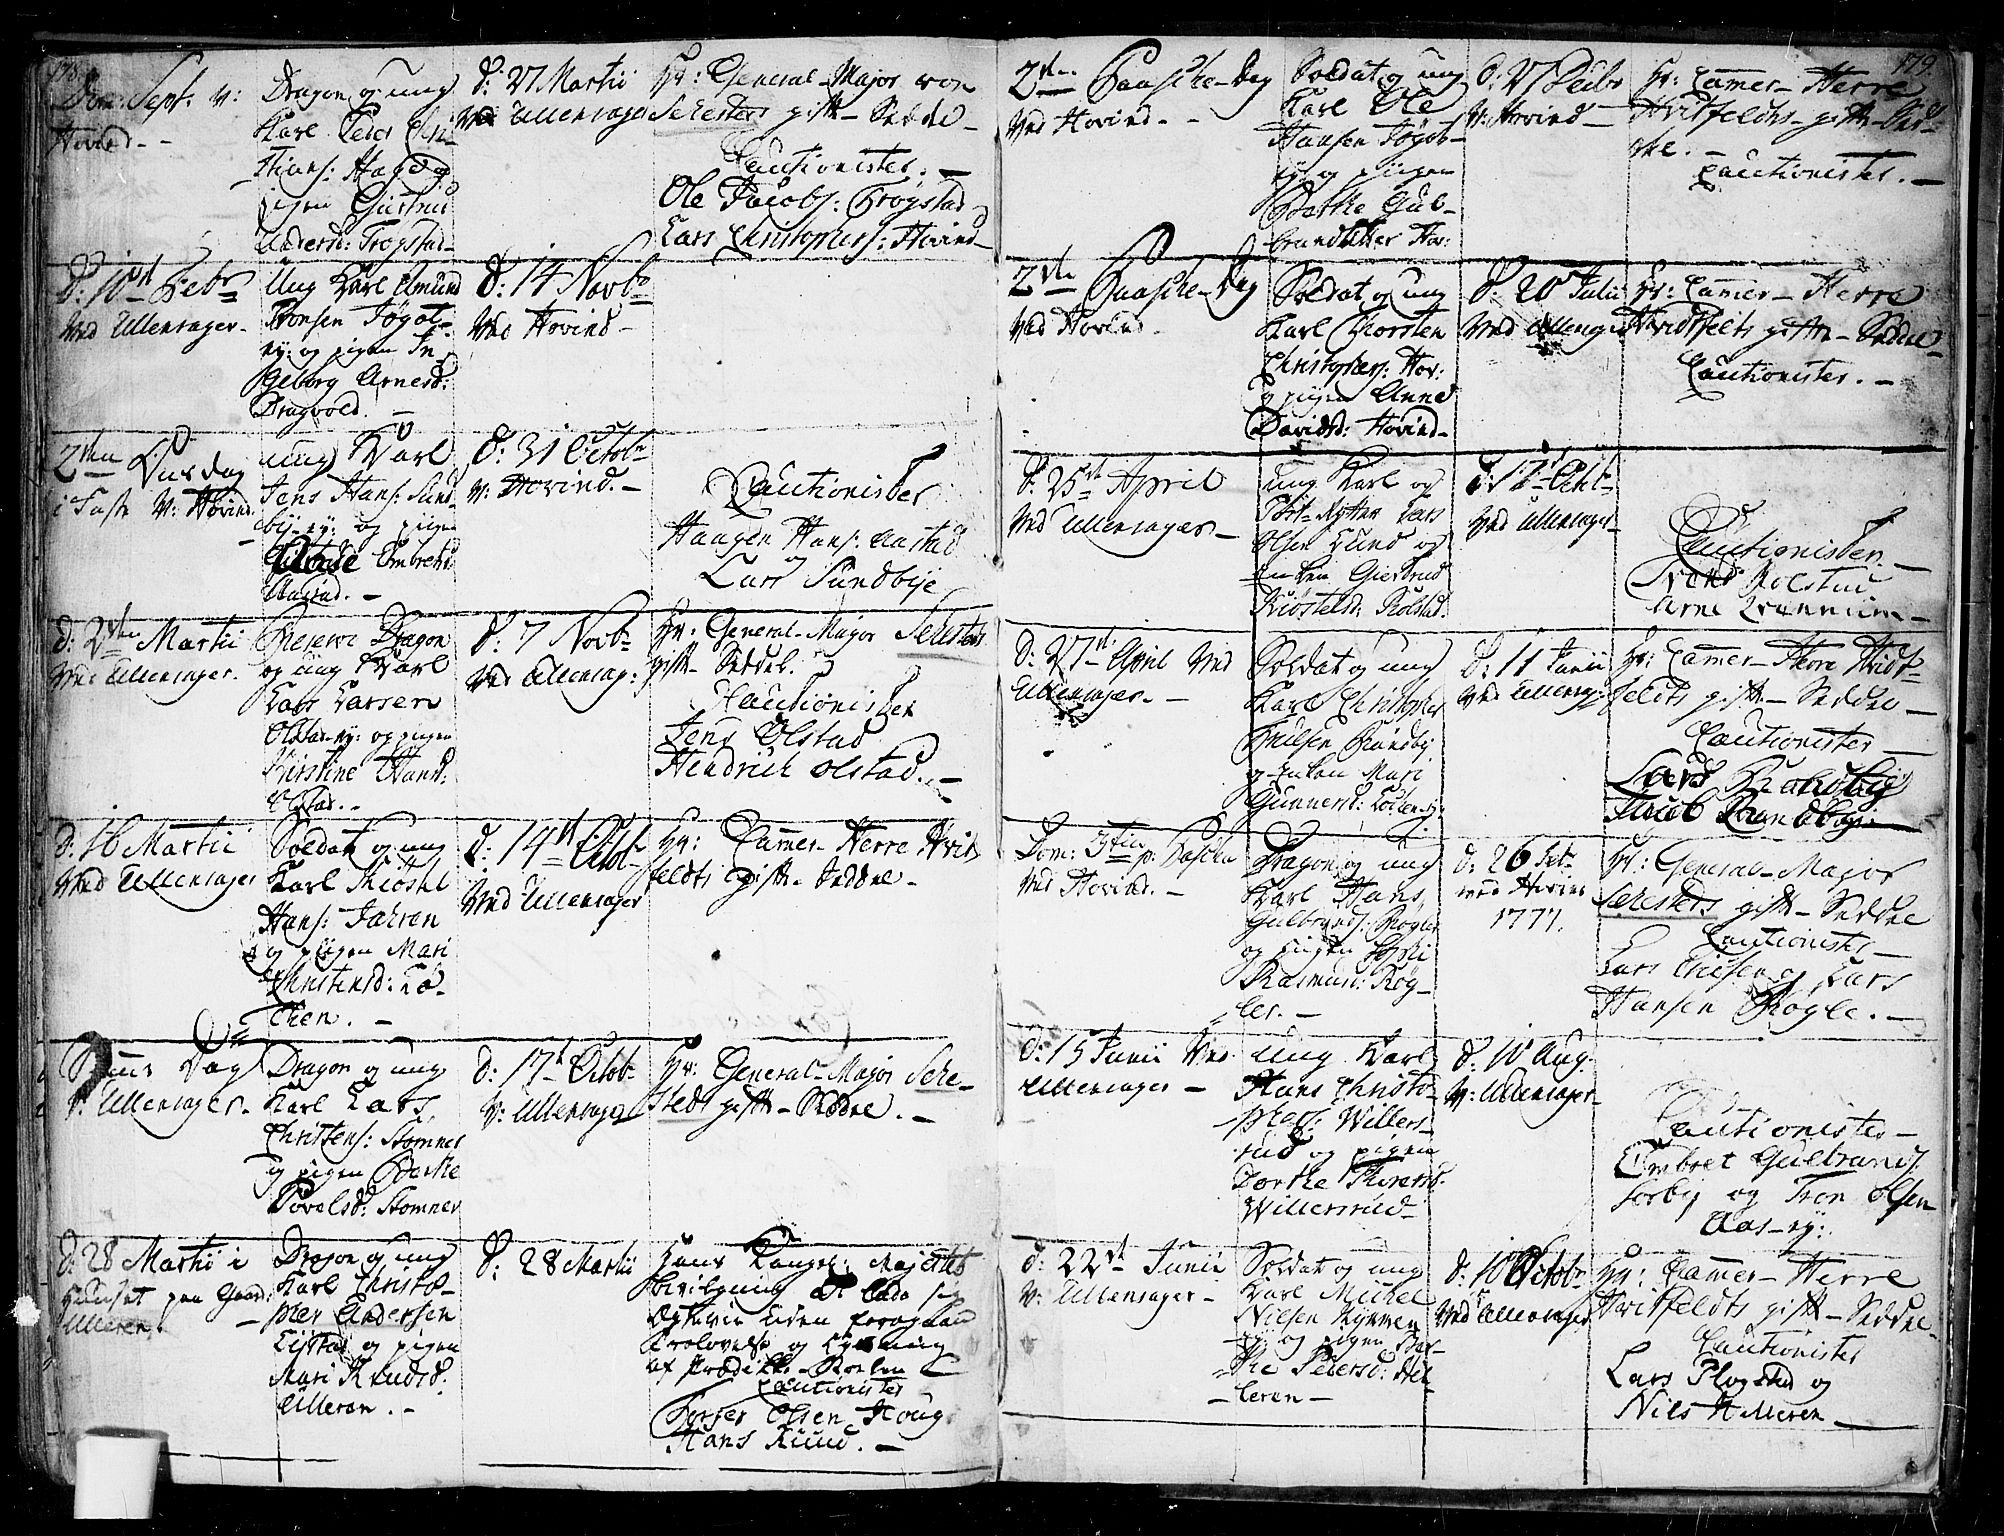 178.
Dom: Sept. v:
Hovind. -
Dragon og ung
Karl Peder Chri-
stians: Hag og
pigen Giertrud
Andersd: Trogstad-
d: 27 Martii
Ved Ullensager
Hr: General-Major von
Schesteds gifte-Seddel-
Cautionister. -
Ole Jacobs: Trogstad
Lars Christophers: Hovind-
d: 10 Febr
Ved Ullensager-
Ung Karl Amund
Joensen Jøgst-
ey: og pigen In-
geborg Arnesd:
Dragvold. -
d: 14 Novbr
Ved Hovind-
2den Søndag
i Faste V: Hovind.
ung Karl
Jens Hans: Sund-
bye ey: og pigen
Embretsd:
d: 31 Octobr
v: Hovind. -
Cautionister
Haagen Hans: Aastad
Lars Sundbije
d: 2den Martii
Ved Ullensager.
Reserve Dragon
og ung Karl
Lars Larsen
Olstad-ey: og pigen
Kirstine Hansd:
Olstad. -
d: 7 Novbr
Ved Ullensag:
Hr: General-Major Schesteds
gifte-Seddel.
Cautionister
Jens Olstad
Hendrich Olstad. -
d: 16 Martii
Ved Ullensager
Soldat og ung
Karl Kiøstel
Hans: Jahren
og pigen Mari
Christensd: Lø-
chen. -
d: 14 Octbr
Ved Ullensager
Hr: Camer-Herre Hvit
feldts gifte-Seddel-
Dag
V: Ullensager.
Dragon og ung
Karl Lars
Christens: Stomner
og pigen Berthe
Povelsd: Stomner
d: 17 Octobr
V: Ullensager
Hr: General-Major Sche-
steds gifte-Seddel. -
d: 28 Martii i
Huuset paa Gaarden
Ulleren.
Dragon og ung
Karl Christo-
pher Andersen
Listad og pigen
Mari Knudsd:
Ulleren. -
d: 28 Martii
Hans Kongel: Majestets
bevilgning at lade sig
Egtevie uden foregaaende
Trolovelse og Lysning
af Prædike-Stolen
Cautionister
Torger Olsen Houg
Hans Ruud. -
179.
2den Paaske-Dag
Ved Hovind. -
Soldat og ung
Karl Ole
Hansen Jøgst-
ey og pigen
Berthe Gul-
brandsdatter Hov:
d: 27 Decbr
V: Hovind-
Hr: Camer-Herre
Hvitfeldts-gifte-Sed-
del. -
Cautionister. -
2den Paaske-Dag
Ved Hovind.
Soldat og ung
Karl Thorsten
Christophers: Hov:
og pigen Anne
Davidsd: Hovind-
d: 20 Julii
Ved Ullensager
Hr: Camer-Herre
Hvidtfeldts gifte-Seddel-
Cautionister. -
d: 25 April
Ved Ullensager-
ung Karl og
Lars
Olsen Lund og
Enken Giertrud
Kiøstelsd: Rolstad
d: 17 Octbr
Ved Ullensager-
Cautionister. -
Svend Rolstad
Arne
d: 27 April Ved
Ullensager. -
Soldat og ung
Karl Christopher
Brandby
og Enken Mari
Gunnersd: Løchen-ey:
d: 11 Junii
Ved Ullensag:
Hr: Camer-Herre Hvidt-
feldts gifte-Seddel-
Cautionister -
Lars Brandby
Jacob Brandbye-
Dom: 3tia p: Pascha
Ved Hovind. -
Dragon og ung
Karl Hans
Gulbrands: Rogler
og pigen Sophi
Rasmusd: Røg-
ler. -
d: 26
ved Hovind
1777.
Hr: General-Major
Schesteds gifte-Seddel
Cautionister-
Lars Olsen og Lars
Hansen Rogle. -
d: 15 Junii Ved
Ullensager -
ung Karl
Hans Christo-
phers: Willers-
rud og pigen
Dorthe Thoresd.
Willersrud-
d: 10 Aug.
V: Ullensager-
Cautionister -
Embret Gulbrands:
Sørby og Tron Olsen
Aas-ey:
d: 22 Junii
V: Ullensager-
Soldat og ung
Karl Michel
Nilsen
ey og pigen Ber-
the Pedersd: Hil-
leren-
d: 10 Octobr
Ved Ullensager
Hr: Camer-Herre
Hvitfeldts gifte-Seddel-
Cautionister
Lars Plogstad og
Niels Hilleren-